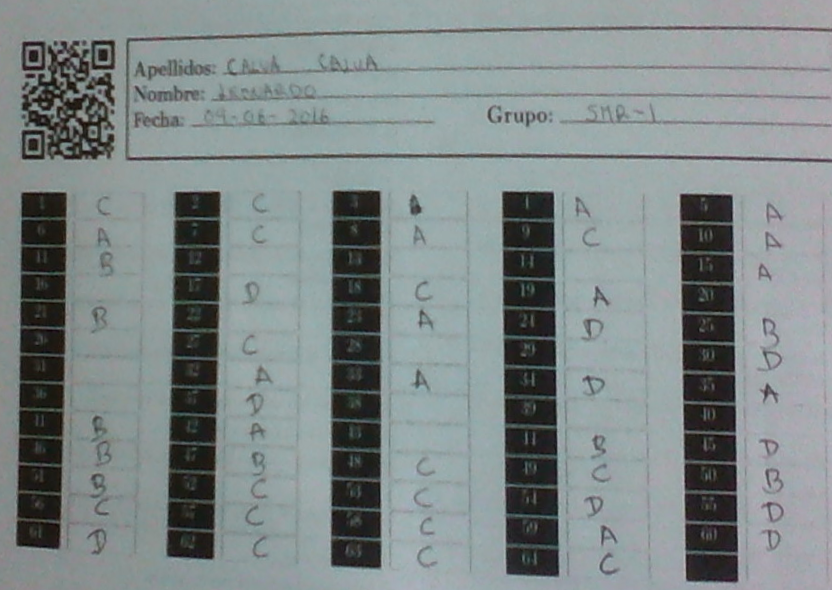 Apellidos: CALVA CALVA
Nombre: LEONARDO
Fecha: 09-06-2016 Grupo: SMR-1
1 C 2 C 3 A 4 A 5 A
6 A 7 C 8 A 9 C 10 A
11 B 12 13 14 15 A
16 17 D 18 C 19 A 20
21 B 22 23 A 24 D 25 B
26 27 C 28 29 30 D
31 32 A 33 A 34 D 35 A
36 37 D 38 39 40
41 B 42 A 43 44 B 45 D
46 B 47 B 48 C 49 C 50 B
51 B 52 C 53 C 54 D 55 D
56 C 57 C 58 C 59 A 60 D
61 D 62 C 63 C 64 C